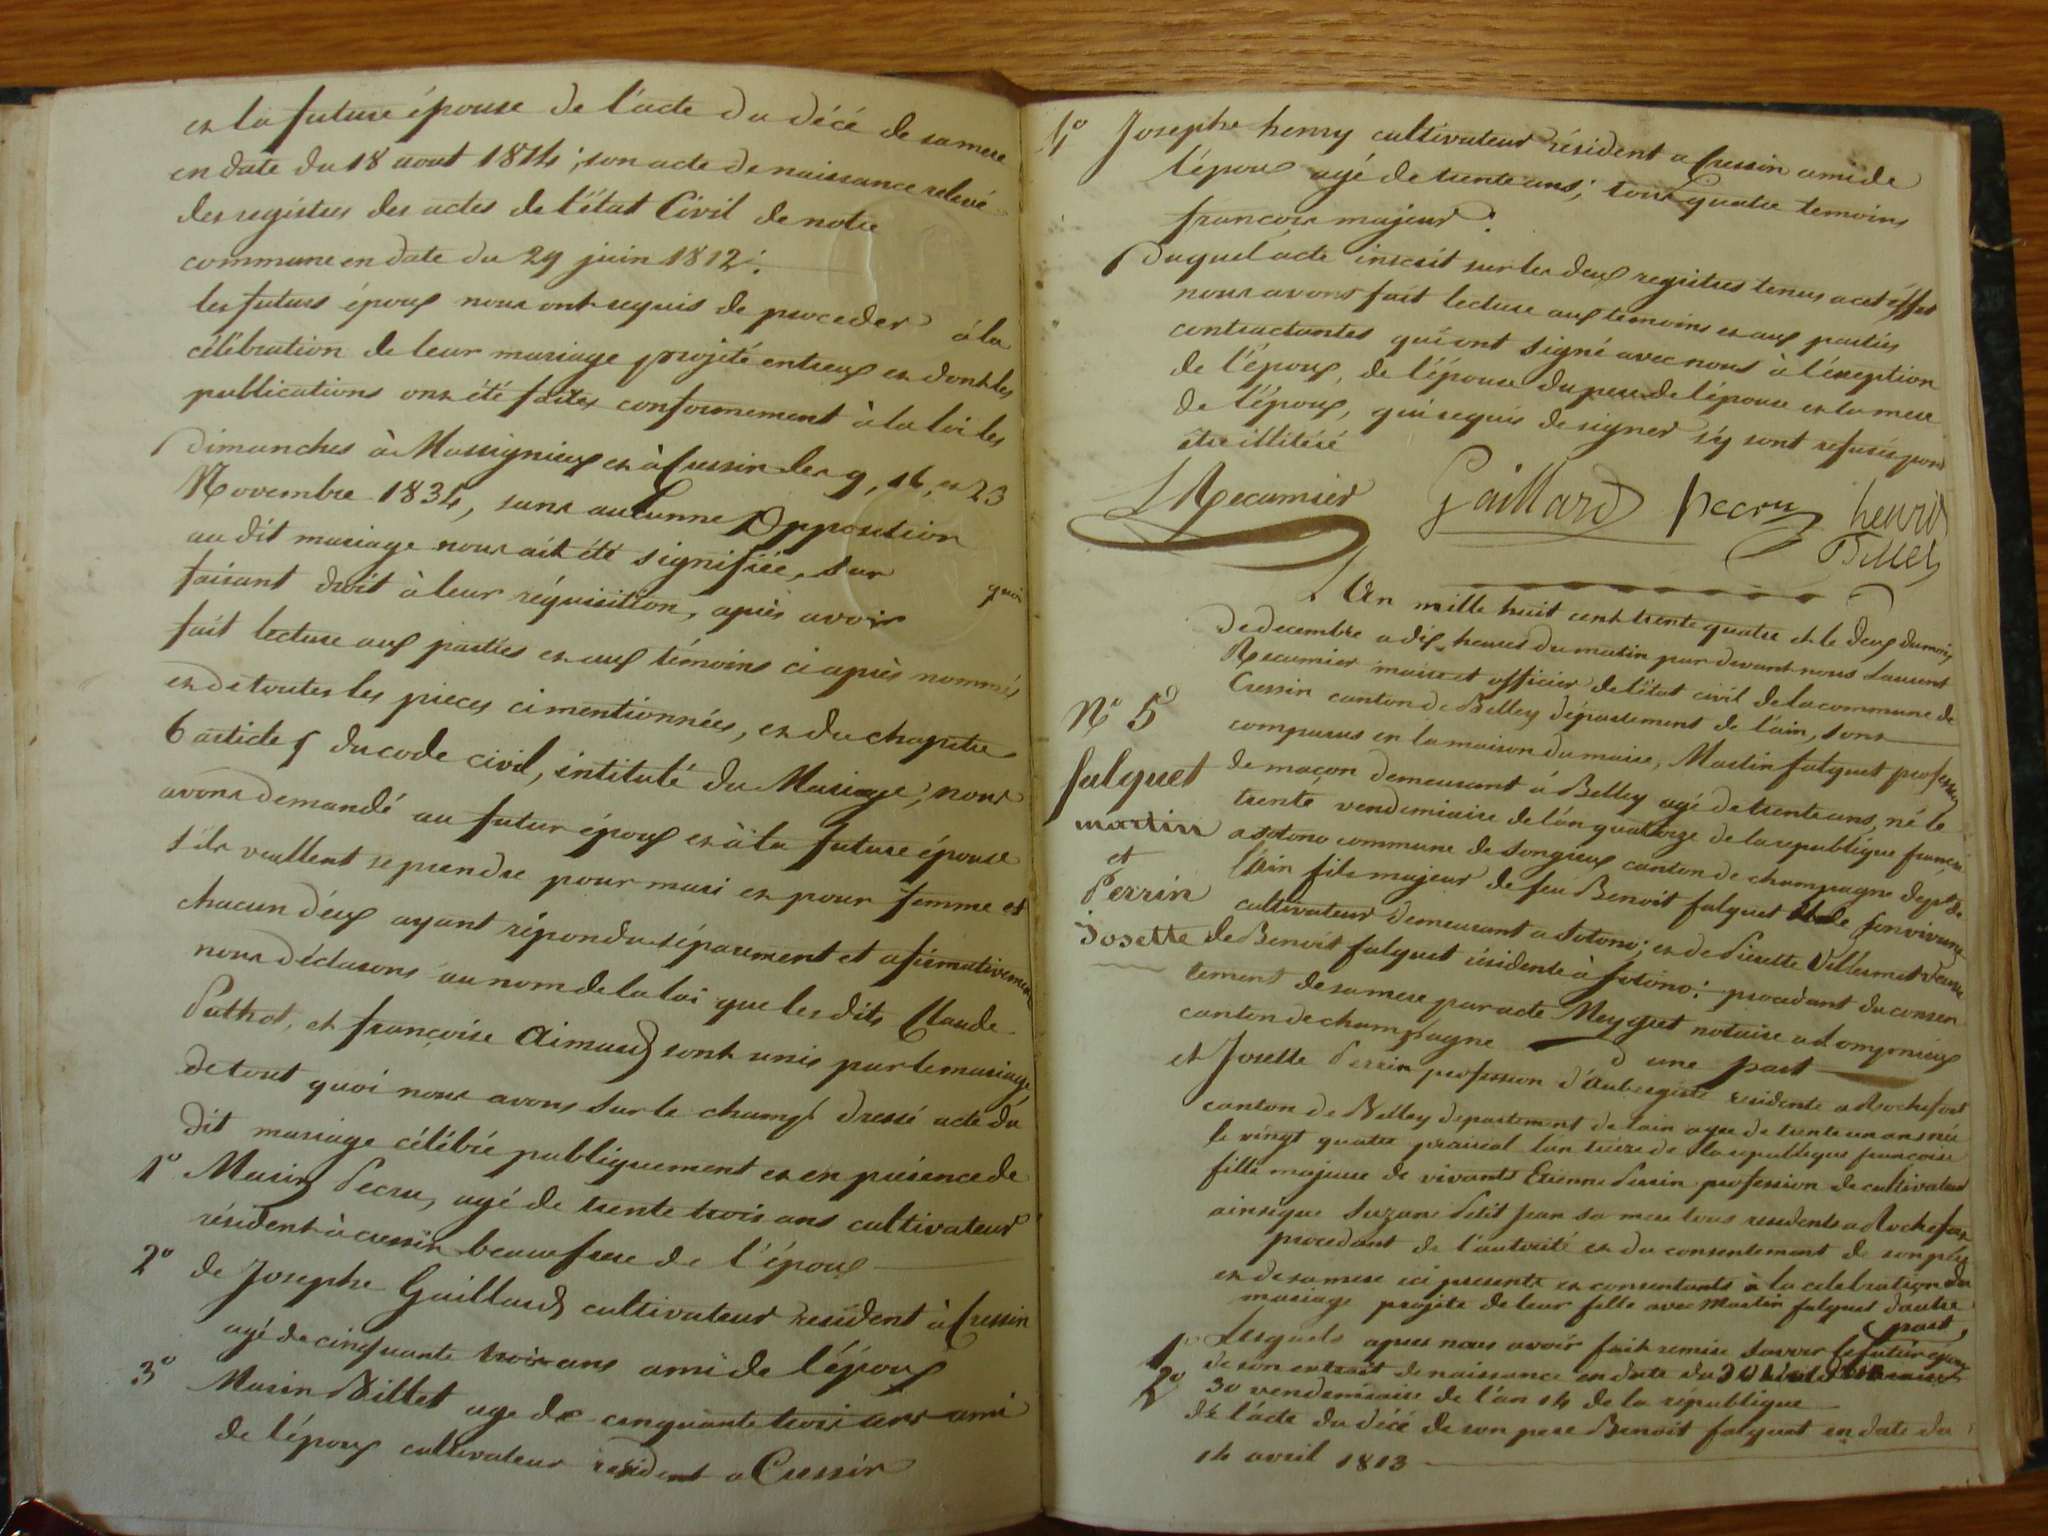 et la future épouse de l'acte du décé de sa mere
en date du 18 aout 1814; son acte de naissance relevé
des registres des actes de l'état Civil de notre
commune en date du 29 juin 1812;.
les futurs époux nous ont requis de proceder à la
célébration de leur mariage projeté entreux et dont les
publications ont été faites conformement à la loi les
dimanches à Massignieux et à Cressin les 9, 16, et 23
Novembre 1834, sans aucunne Opposition
au dit mariage nous ait été signifiée, Sur quoi
faisant droit à leur réquisition, après avoir
fait lecture aux parties et aux témoins ci après nommés
et de toutes les pieces ci mentionnées, et du chapitre
6 article du code civil, intitulé du Mariage, nous
avons demandé au futur époux et à la future épouse
s'ils veullent se prendre pour mari et pour femme et
chacun d'eux ayant répondu séparement et afirmativement
nous déclarons au nom de la loi que les dits Claude
Pathot, et françoise Aimard sont unis par le mariage,
de tout quoi nous avons sur le champ dressé acte du
dit mariage célébré publiquement et en présence de
1° Marin Pecru, agé de trente trois ans cultivateur
résident à cressin beaufrere de l'époux
2° de Josephe Gaillard cultivateur résident à Cressin
agé de cinquante trois ans ami de l'époux
3° Marin Billet age de cinquante trois ans ami
de l'époux cultivateur resident a Cressin
4° Josephe henry cultivateur résident a Cressin ami de
l'époux agé de trente ans; tous quatre temoins
françois majeur.
Duquel acte inscrit sur les deux registres tenus a cet éffet
nous avons fait lecture aux temoins et aux parties
contractantes qui ont signé avec nous à l'éxeption
de l'époux, de l'épouse du pere de l'épouse et la mere
de l'époux, qui requis de signer s'y sont refusés pour
être illitéré
L Recamier Gaillard Pecru henri
Billet
L'An mille huit cent trente quatre et le deux du mois
de decembre a dix heures du matin par devant nous Laurent
Recamier maire et officier de l'état civil de la commune de
Cressin canton de Belley département de l'ain, sont
N° 5
comparus en la maison du maire, Martin falquet profession
falquet
martin
et
Perrin
Josette
de maçon demeurant à Belley agé de trente ans, né le
trente vendemiaire de l'an quatorze de la republique françoise
a Sotono commune de Songieux canton de champagne dept de
l'ain fils majeur de feu Benoit falquet de son vivant
cultivateur demeurant a Sotono; et de Pierette Villermet veuve
de Benoit falquet résidente à Sotono; procedant du consen
tement de sa mere par acte Meyguet notaire a Lompnieux
canton de champagne d'une part
et Josette Perrin profession d'Aubergiste residente a Rochefort
canton de Belley departement de l'ain agee de trente un ans née
le vingt quatre prairial l'an treize de la republique francoise
fille majeure de vivants Etienne Perrin profession de cultivateur
ainsique Suzane Petit Jean sa mere tous residents a Rochefort
procedant de l'autorité et du consentement de son père
et de sa mere ici presents et consentants à la celebration du
mariage projeté de leur fille avec Martin falquet d'autre
part,
Lesquels apres nous avoir fait remise savoir le futur epoux
1° de son extrait de naissance en date du
30 vendemiaire de l'an 14 de la république
2° de l'acte du décé de son pere Benoit falquet en date du
14 avril 1813